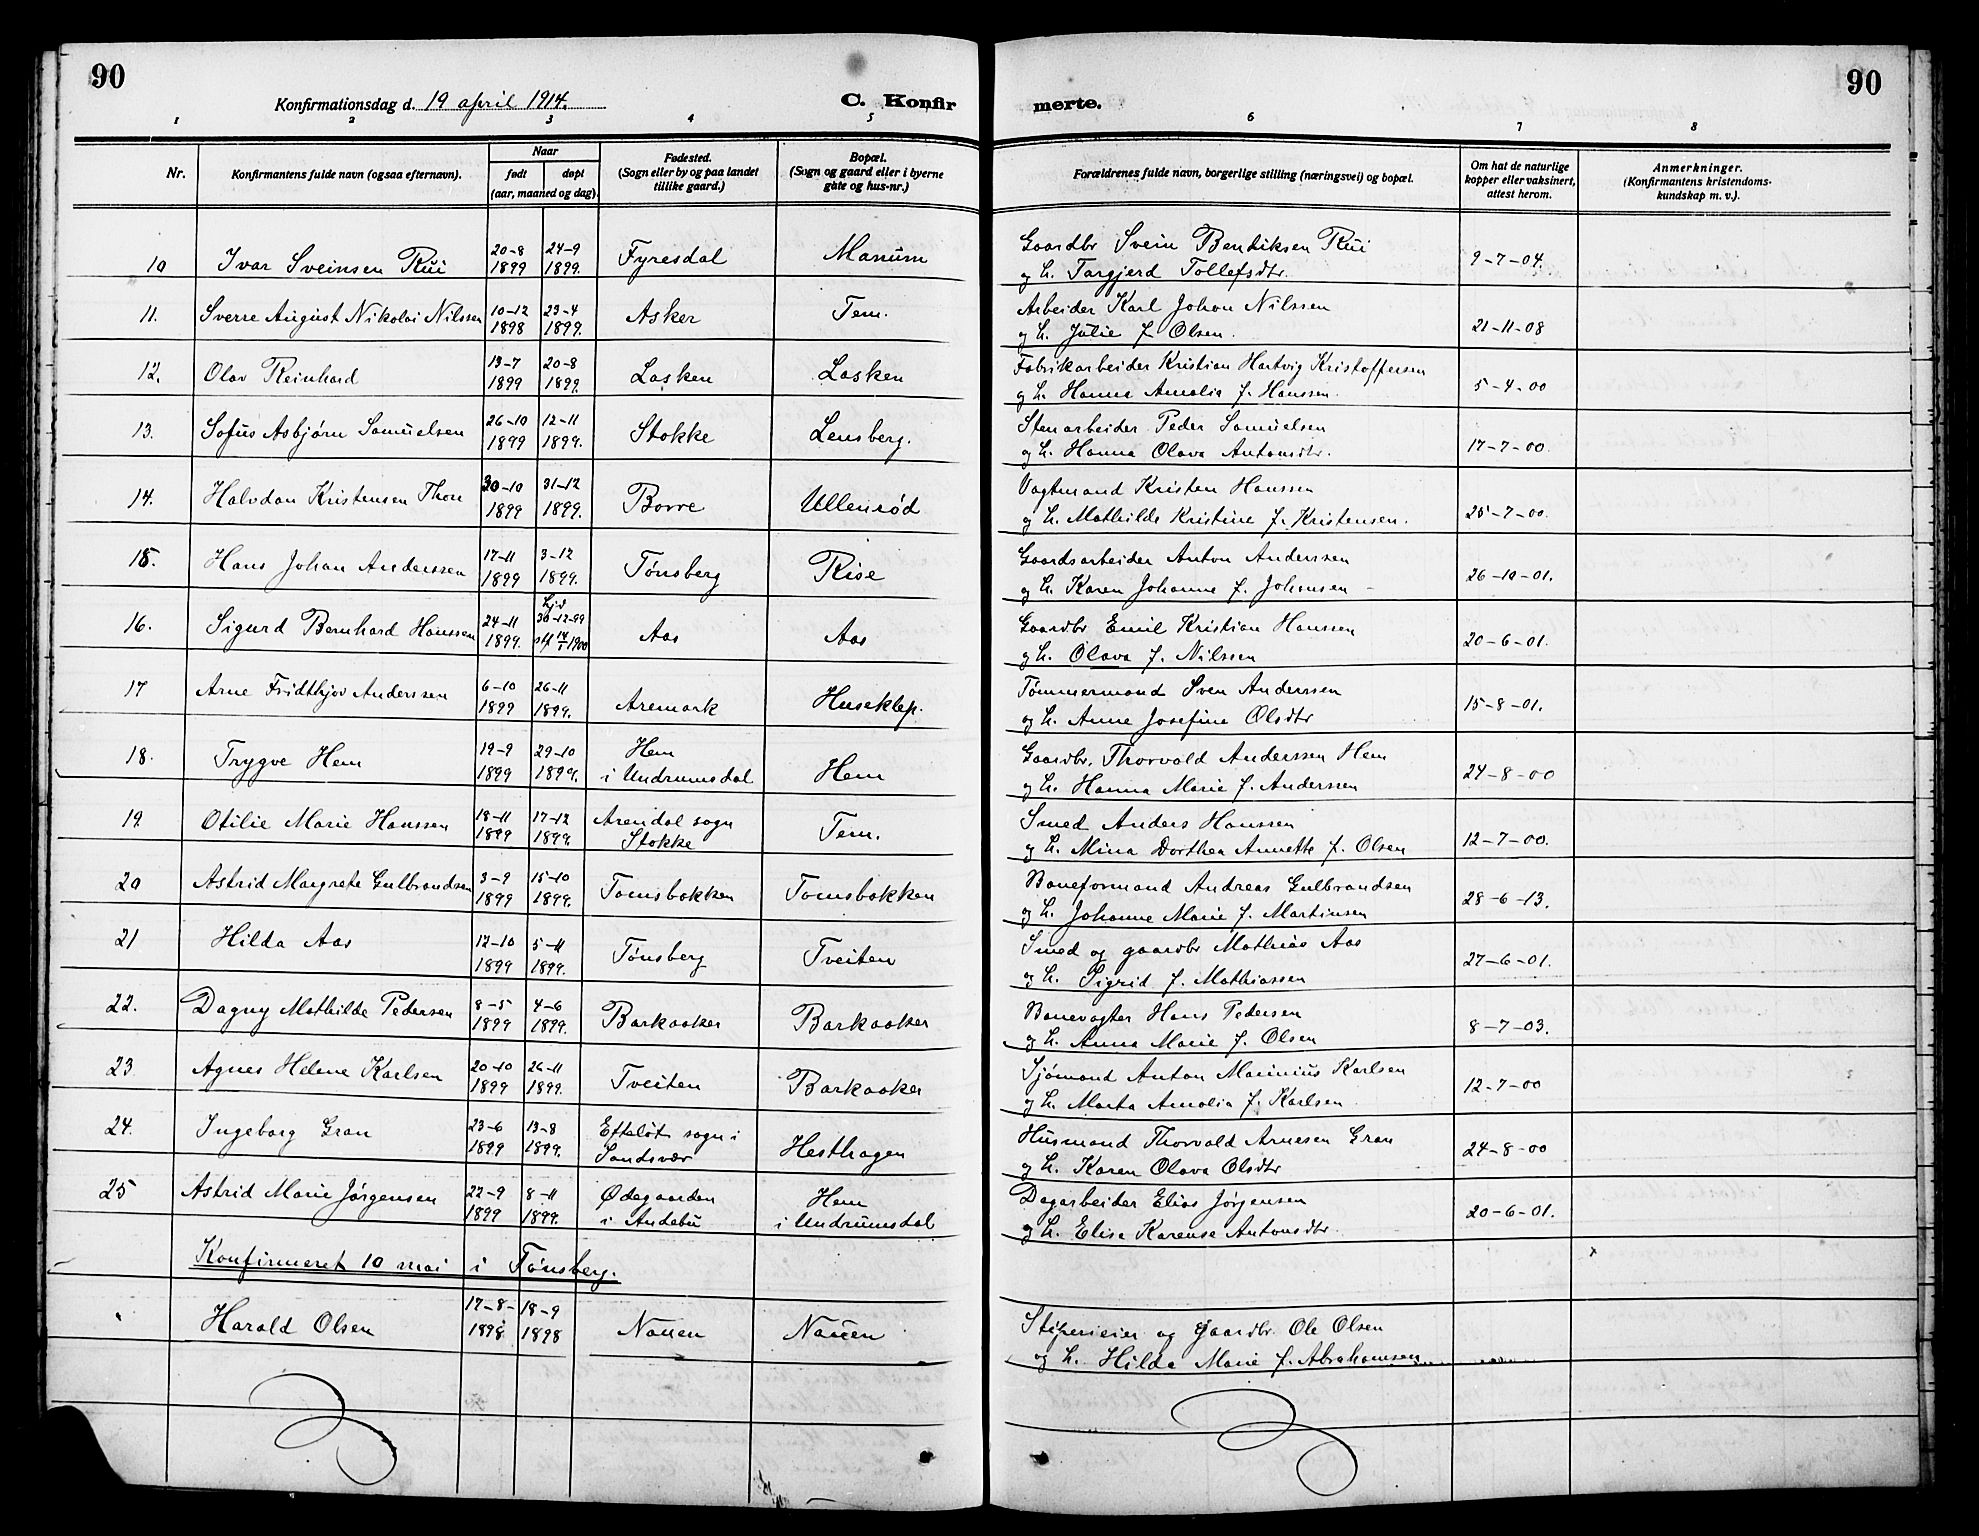 90
Konfirmationsdag d. 19 april 1914.
C. Konfir merte.
90
1 2 3 4 5 6 7 8
Nr.
Konfirmantens fulde navn (ogsaa efternavn).
Naar
født døpt
(aar, maaned og dag).
Fødested.
(Sogn eller by og paa landet
tillike gaard.)
Bopæl.
(Sogn og gaard eller i byerne
gate og hus-nr.)
Forældrenes fulde navn, borgerlige stilling (næringsvei) og bopæl.
Om hat de naturlige
kopper eller vaksinert,
attest herom.
Anmerkninger.
(Konfirmantens kristendoms-
kundskap m. v.).
10 Ivar Sveinsen Rui 20-8 1899 24-9 1899. Fyresdal Manum Gaardbr Svein Bendiksen Rui
og h. Targjerd Tollefsdtr. 9-7-04.
11. Sverre August Nikolai Nilssen 10-12 1898 23-4 1899. Asker Tem. Arbeider Karl Johan Nilssen
og h. Julie f. Olsen. 21-11-08
12. Olav Reinhard 13-7 1899 20-8 1899. Lasken Lasken Fabrikarbeider Kristian Hartvig Kristoffersen
og h. Hanna Amalia f. Hanssen. 5-4-00
13. Sofus Asbjørn Samuelsen 26-10 1899 12-11 1899. Stokke Lensberg. Stenarbeider Peder Samuelsen
og h. Hanna Olava Antonsdtr. 17-7-00.
14. Halvdan Kristensen Thon 30-10 1899 31-12 1899. Borre Ullensrød Vagtmand Kristen Hanssen
og h. Mathilde Kristine f. Kristensen. 25-7-00.
15. Hans Johan Anderssen 17-11 1899 3-12 1899. Tønsberg Rise Gaardsarbeider Anton Anderssen
og h. Karen Johanne f. Johansen 26-10-01.
16. Sigurd Bernhard Hanssen 24-11 1899. hjd 30-12-99 stf 14/1 1900 Aas Aas Gaardbr Emil Kristian Hanssen
og h. Olava f. Nilssen 20-6-01.
17 Arne Fridthjov Anderssen 6-10 1899 26-11 1899. Aremark Huseklep. Tømmermand Sven Anderssen
og h. Anne Josefine Olsdtr 15-8-01.
18. Trygve Hem 19-9 1899 29-10 1899. Hem
i Undrumsdal Hem Gaardbr. Thorvald Anderssen Hem
og h. Hanna Marie f. Anderssen 24-8-00
19. Otilie Marie Hanssen 18-11 1899 17-12 1899. Arendal sogn
Stokke Tem. Smed Anders Hanssen
og h. Mina Dorthea Annette f. Olsen 12-7-00.
20 Astrid Margrete Gulbrandsen 3-9 1899 15-10 1899. Tomsbakken Tomsbakken Baneformand Andreas Gulbrandsen
og h. Johanne Marie f. Martinsen 28-6-13.
21 Hilda Aas 12-10 1899 5-11 1899. Tønsberg Tveiten Smed og gaardbr Mathias Aas
og h. Sigrid f. Mathiassen 27-6-01.
22. Dagny Mathilde Pedersen 8-5 1899 4-6 1899. Barkaaker Barkaaker Banevogter Hans Pedersen
og h. Anna Marie f. Olsen 8-7-03.
23 Agnes Helene Karlsen 20-10 1899 26-11 1899. Tveiten Barkaaker Sjømand Anton Marinius Karlsen
og h. Marta Amalia f. Karlsen 12-7-00
24. Ingeborg Gran 23-6 1899 13-8 1899. Efteløt sogn i
Sandsvær Hesthagen Husmand Thorvald Arnesen Gran
og h. Karen Olava Olsdtr 24-8-00
25 Astrid Marie Jørgensen 22-9 1899 8-11 1899. Ødegaarden
i Andebu Hem
i Undrumsdal Dagarbeider Elias Jørgensen
og h. Elise Karense Antonsdtr. 20-6-01.
Konfirmeret 10 mai i Tønsberg.
" Harald Olsen 17-8- 1898. 18-9 1898 Nauen Nauen Sliperieier og gaardbr. Ole Olsen
og h. Hilda Marie f. Abrahamsen